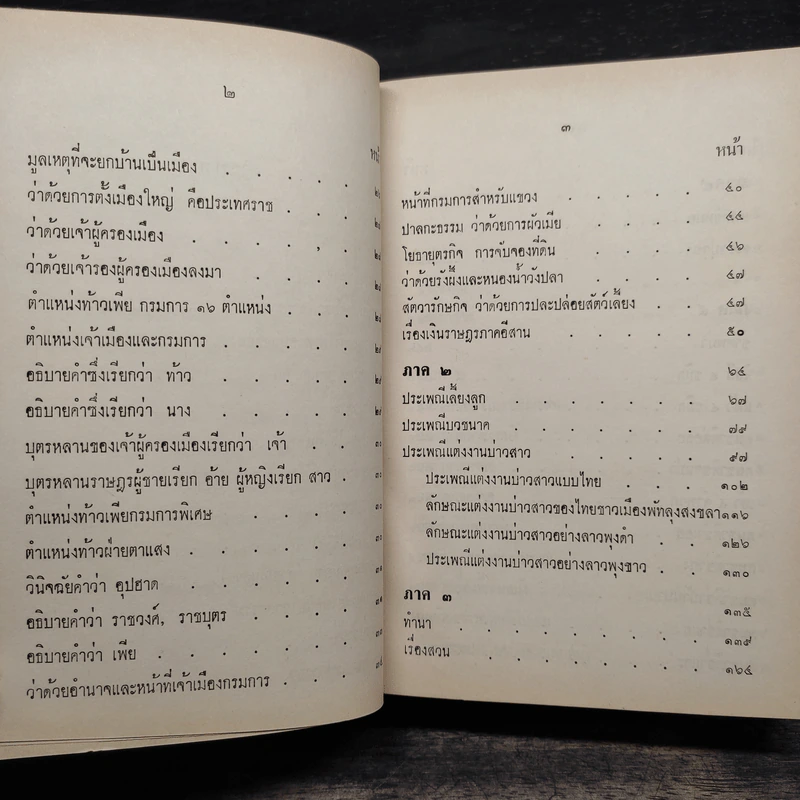 ๒
มูลเหตุที่จะยกบ้านเป็นเมือง . . . . .
ว่าด้วยการตั้งเมืองใหญ่ คือประเทศราช . . .
ว่าด้วยเจ้าผู้ครองเมือง . . . . .
ว่าด้วยเจ้ารองผู้ครองเมืองลงมา . . . .
ตำแหน่งท้าวเพีย กรมการ ๑๖ ตำแหน่ง . . .
ตำแหน่งเจ้าเมืองและกรมการ . . . .
อธิบายคำซึ่งเรียกว่า ท้าว . . . . .
อธิบายคำซึ่งเรียกว่า นาง . . . . .
บุตรหลานของเจ้าผู้ครองเมืองเรียกว่า เจ้า . .
บุตรหลานราษฎรผู้ชายเรียก อ้าย ผู้หญิงเรียก สาว .
ตำแหน่งท้าวเพียกรมการพิเศษ . . . .
ตำแหน่งท้าวฝ่ายตาแสง . . . . .
วินิจฉัยคำว่า อุปฮาด . . . . .
อธิบายคำว่า ราชวงศ์, ราชบุตร . . . .
อธิบายคำว่า เพีย . . . . . .
ว่าด้วยอำนาจและหน้าที่เจ้าเมืองกรมการ . . .
๓
หน้า
หน้าที่กรมการสำหรับแขวง . . . . . ๔๐
ปาลกะธรรม ว่าด้วยการผัวเมีย . . . . ๔๔
โยธายุตรกิจ การจับจองที่ดิน . . . . ๔๖
ว่าด้วยรังผึ้งและหนองน้ำวังปลา . . . . ๔๗
สัตวารักษกิจ ว่าด้วยการปละปล่อยสัตว์เลี้ยง . . ๔๗
เรื่องเงินราษฎรภาคอีสาน . . . . . ๕๐
ภาค ๒ ๖๔
ประเพณีเลี้ยงลูก . . . . . . ๖๗
ประเพณีบวชนาค . . . . . . ๗๙
ประเพณีแต่งงานบ่าวสาว . . . . . ๙๗
ประเพณีแต่งงานบ่าวสาวแบบไทย . . . ๑๐๒
ลักษณะแต่งงานบ่าวสาวของไทยชาวเมืองพัทลุงสงขลา ๑๑๖
ลักษณะแต่งงานบ่าวสาวอย่างลาวพุงดำ . . ๑๒๖
ประเพณีแต่งงานบ่าวสาวอย่างลาวพุงขาว . . ๑๓๐
ภาค ๓ ๑๓๕
ทำนา . . . . . . . . ๑๓๙
เรื่องสวน . . . . . . . ๑๖๔